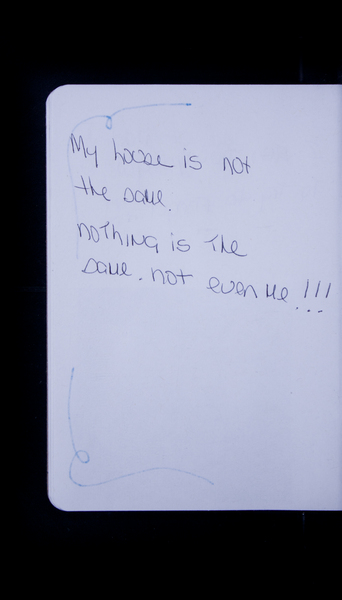 My house is not
the same.
nothing is the
same. not even me !!!
...